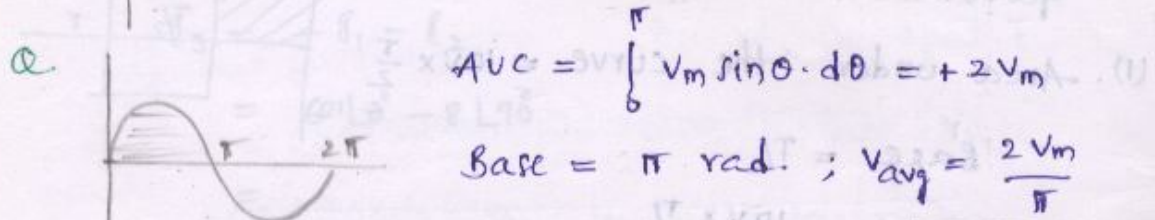 Q. AUC = ∫₀^π Vm sinθ. dθ = + 2 Vm
π 2π
Base = π rad. ; Vavg = 2 Vm / π